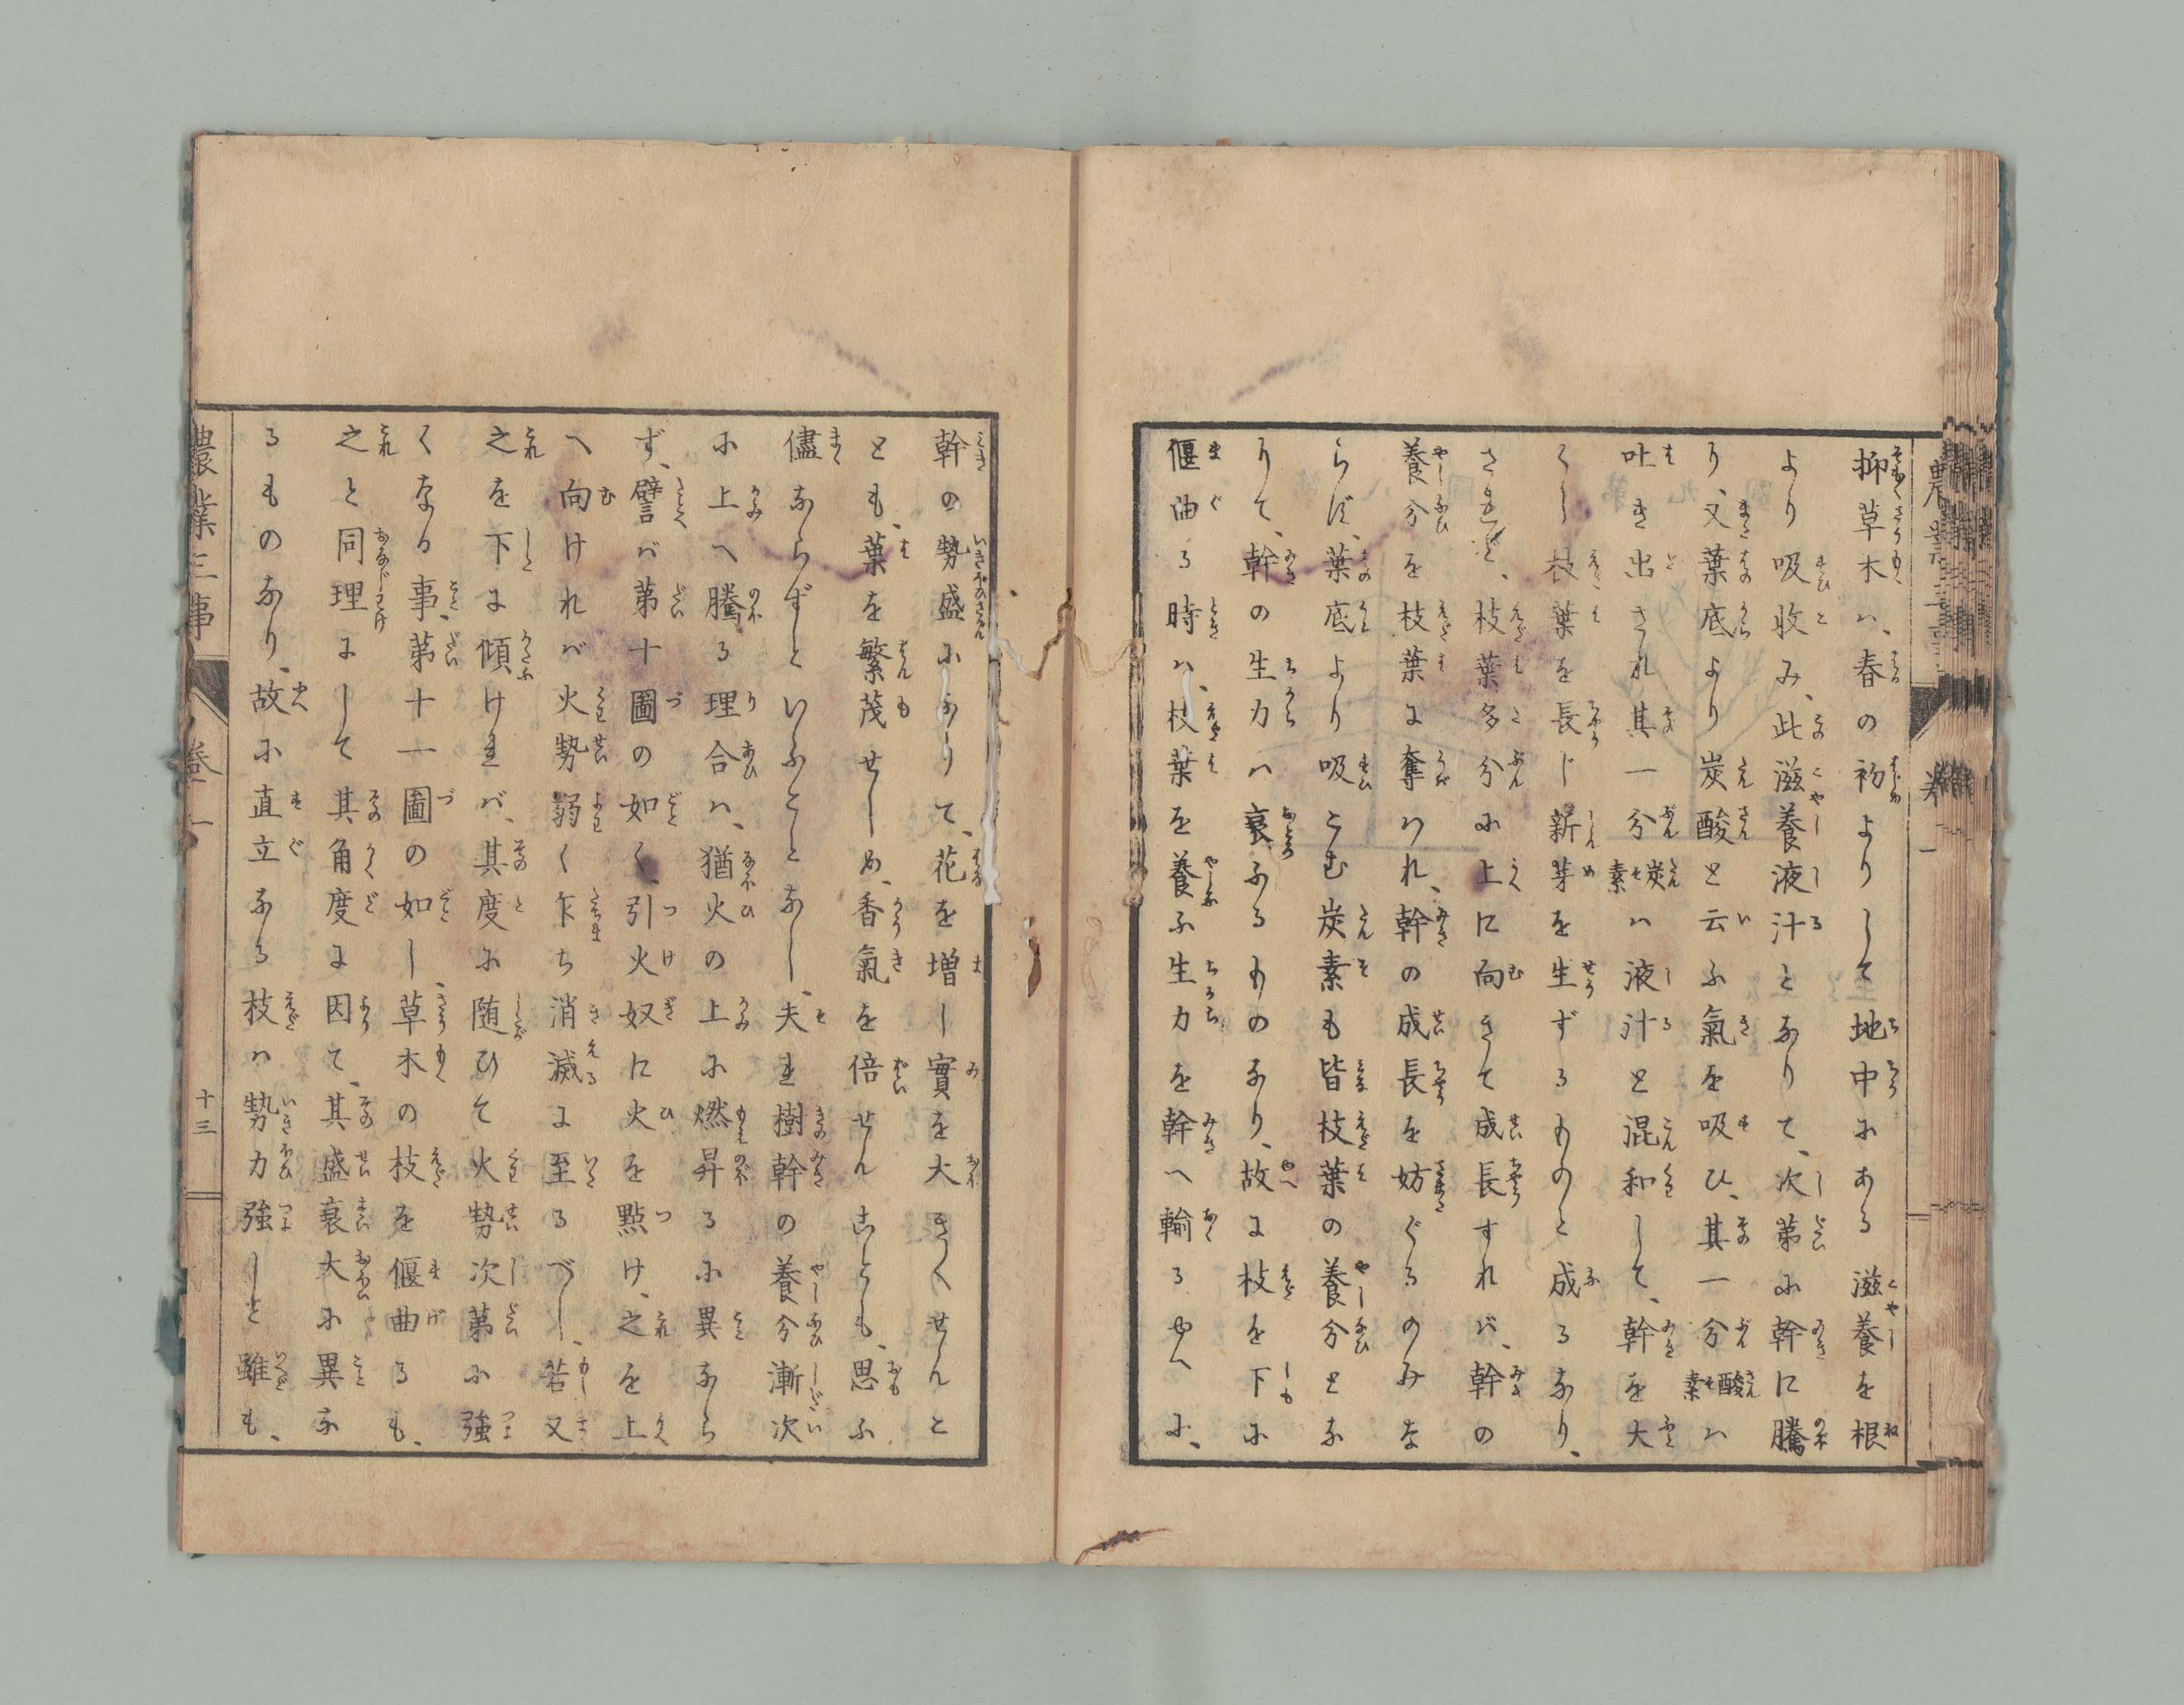 抑草木ハ、春の初よりして地中にある滋養を根
より吸收み、此滋養液汁となりて、次第に幹に騰
り、又葉底より炭酸と云ふ氣を吸ひ、其一分酸素ハ
吐き出され其一分炭素ハ液汁と混和して、幹を大
くし枝葉を長じ新芽を生ずるものと成るなり、
されど、枝葉多分に上に向きて成長すれバ、幹の
養分を枝葉に奪ハれ、幹の成長を妨ぐるのみな
らず、葉底より吸こむ炭素も皆枝葉の養分とな
りて、幹の生力ハ衰ふるものなり、故に枝を下に
偃曲る時ハ、枝葉を養ふ生力を幹へ輸るゆへに、
幹の勢盛になりて、花を増し實を大きくせんと
も、葉を繁茂せしめ、香氣を倍せんことも、思ふ
儘ならずといふことなし、夫れ樹幹の養分漸次
に上へ騰る理合ハ、猶火の上に燃昇るに異なら
ず、譬バ第十圖の如く、引火奴に火を點け、之を上
へ向けれバ火勢弱く乍ち消滅に至るべし、若又
之を下に傾けれバ、其度に随ひて火勢次第に強
くなる事、第十一圖の如し、草木の枝を偃曲るも、
之と同理にして其角度に因て、其盛衰大に異な
るものなり、故に直立なる枝ハ勢力強しと雖も、
農業三事
卷一
十三